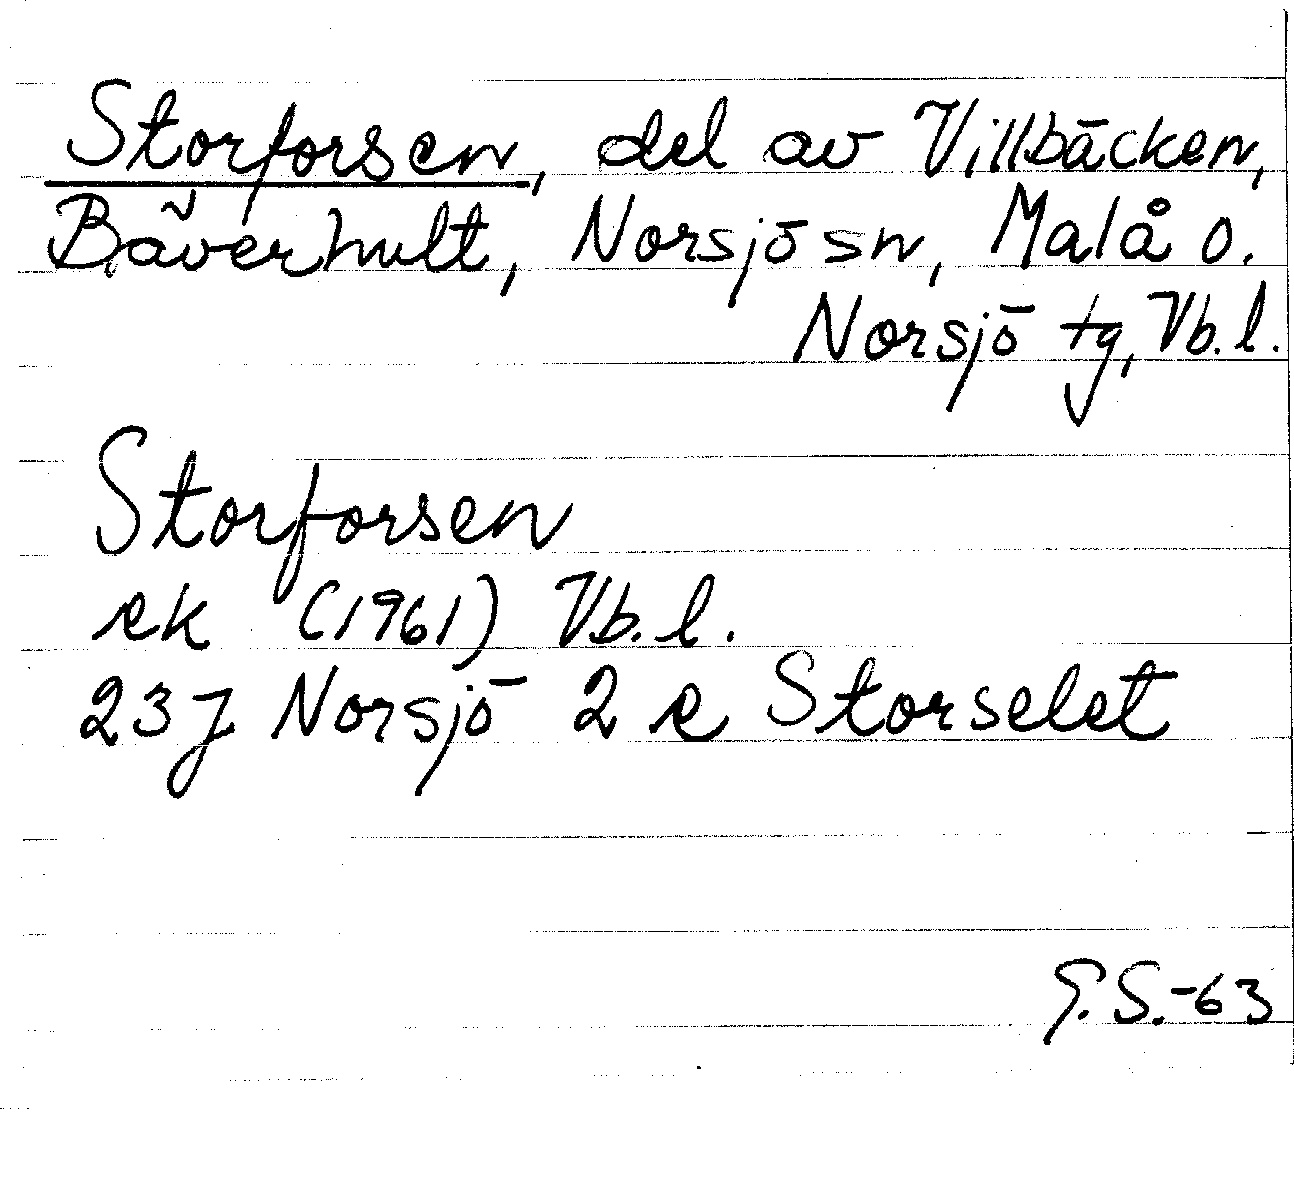 Storforsen, del av Villbäcken,
Bäverhult, Norsjö sn, Malå o.
Norsjö tg, Vb. l.
Storforsen
ek (1961) Vb. l.
23 J Norsjö 2 e Storselet
G. S. -63